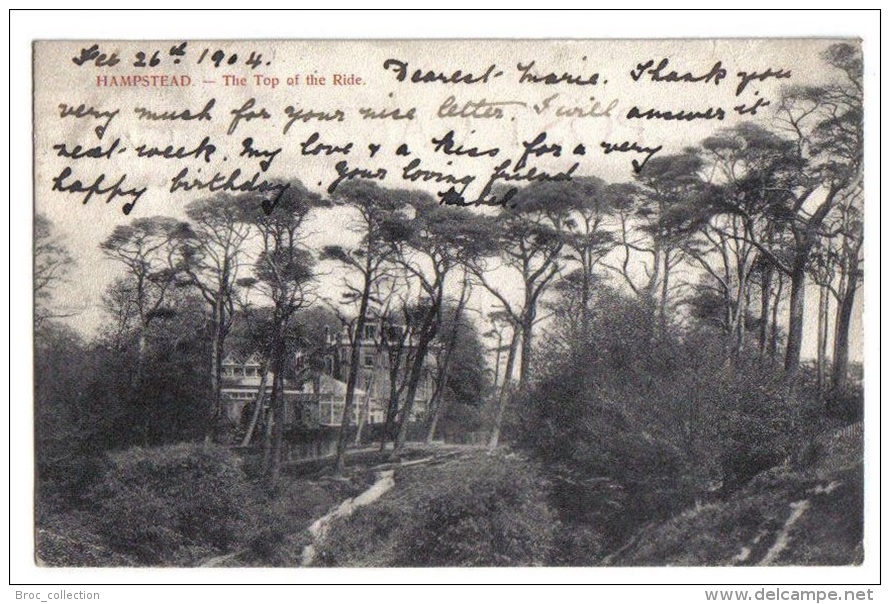 Feb 26th 1904.
HAMPSTEAD. — The Top of the Ride.
Dearest Marie. Thank you
very much for your nice letter. I will answer it
next week. My love & a kiss for a very
happy birthday. Your loving friend
Rachel.
Boc_collection
www.delcampe.net